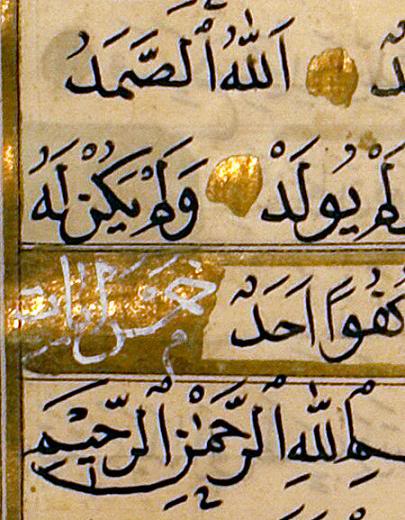 اَللّٰهُ الصَّمَدُ
لَمْ يُولَدْ وَلَمْ يَكُنْ لَهُ
كُفُوًا اَحَدٌ خمس ايات
بِسْمِ اللّٰهِ الرَّحْمٰنِ الرَّحِيْمِ